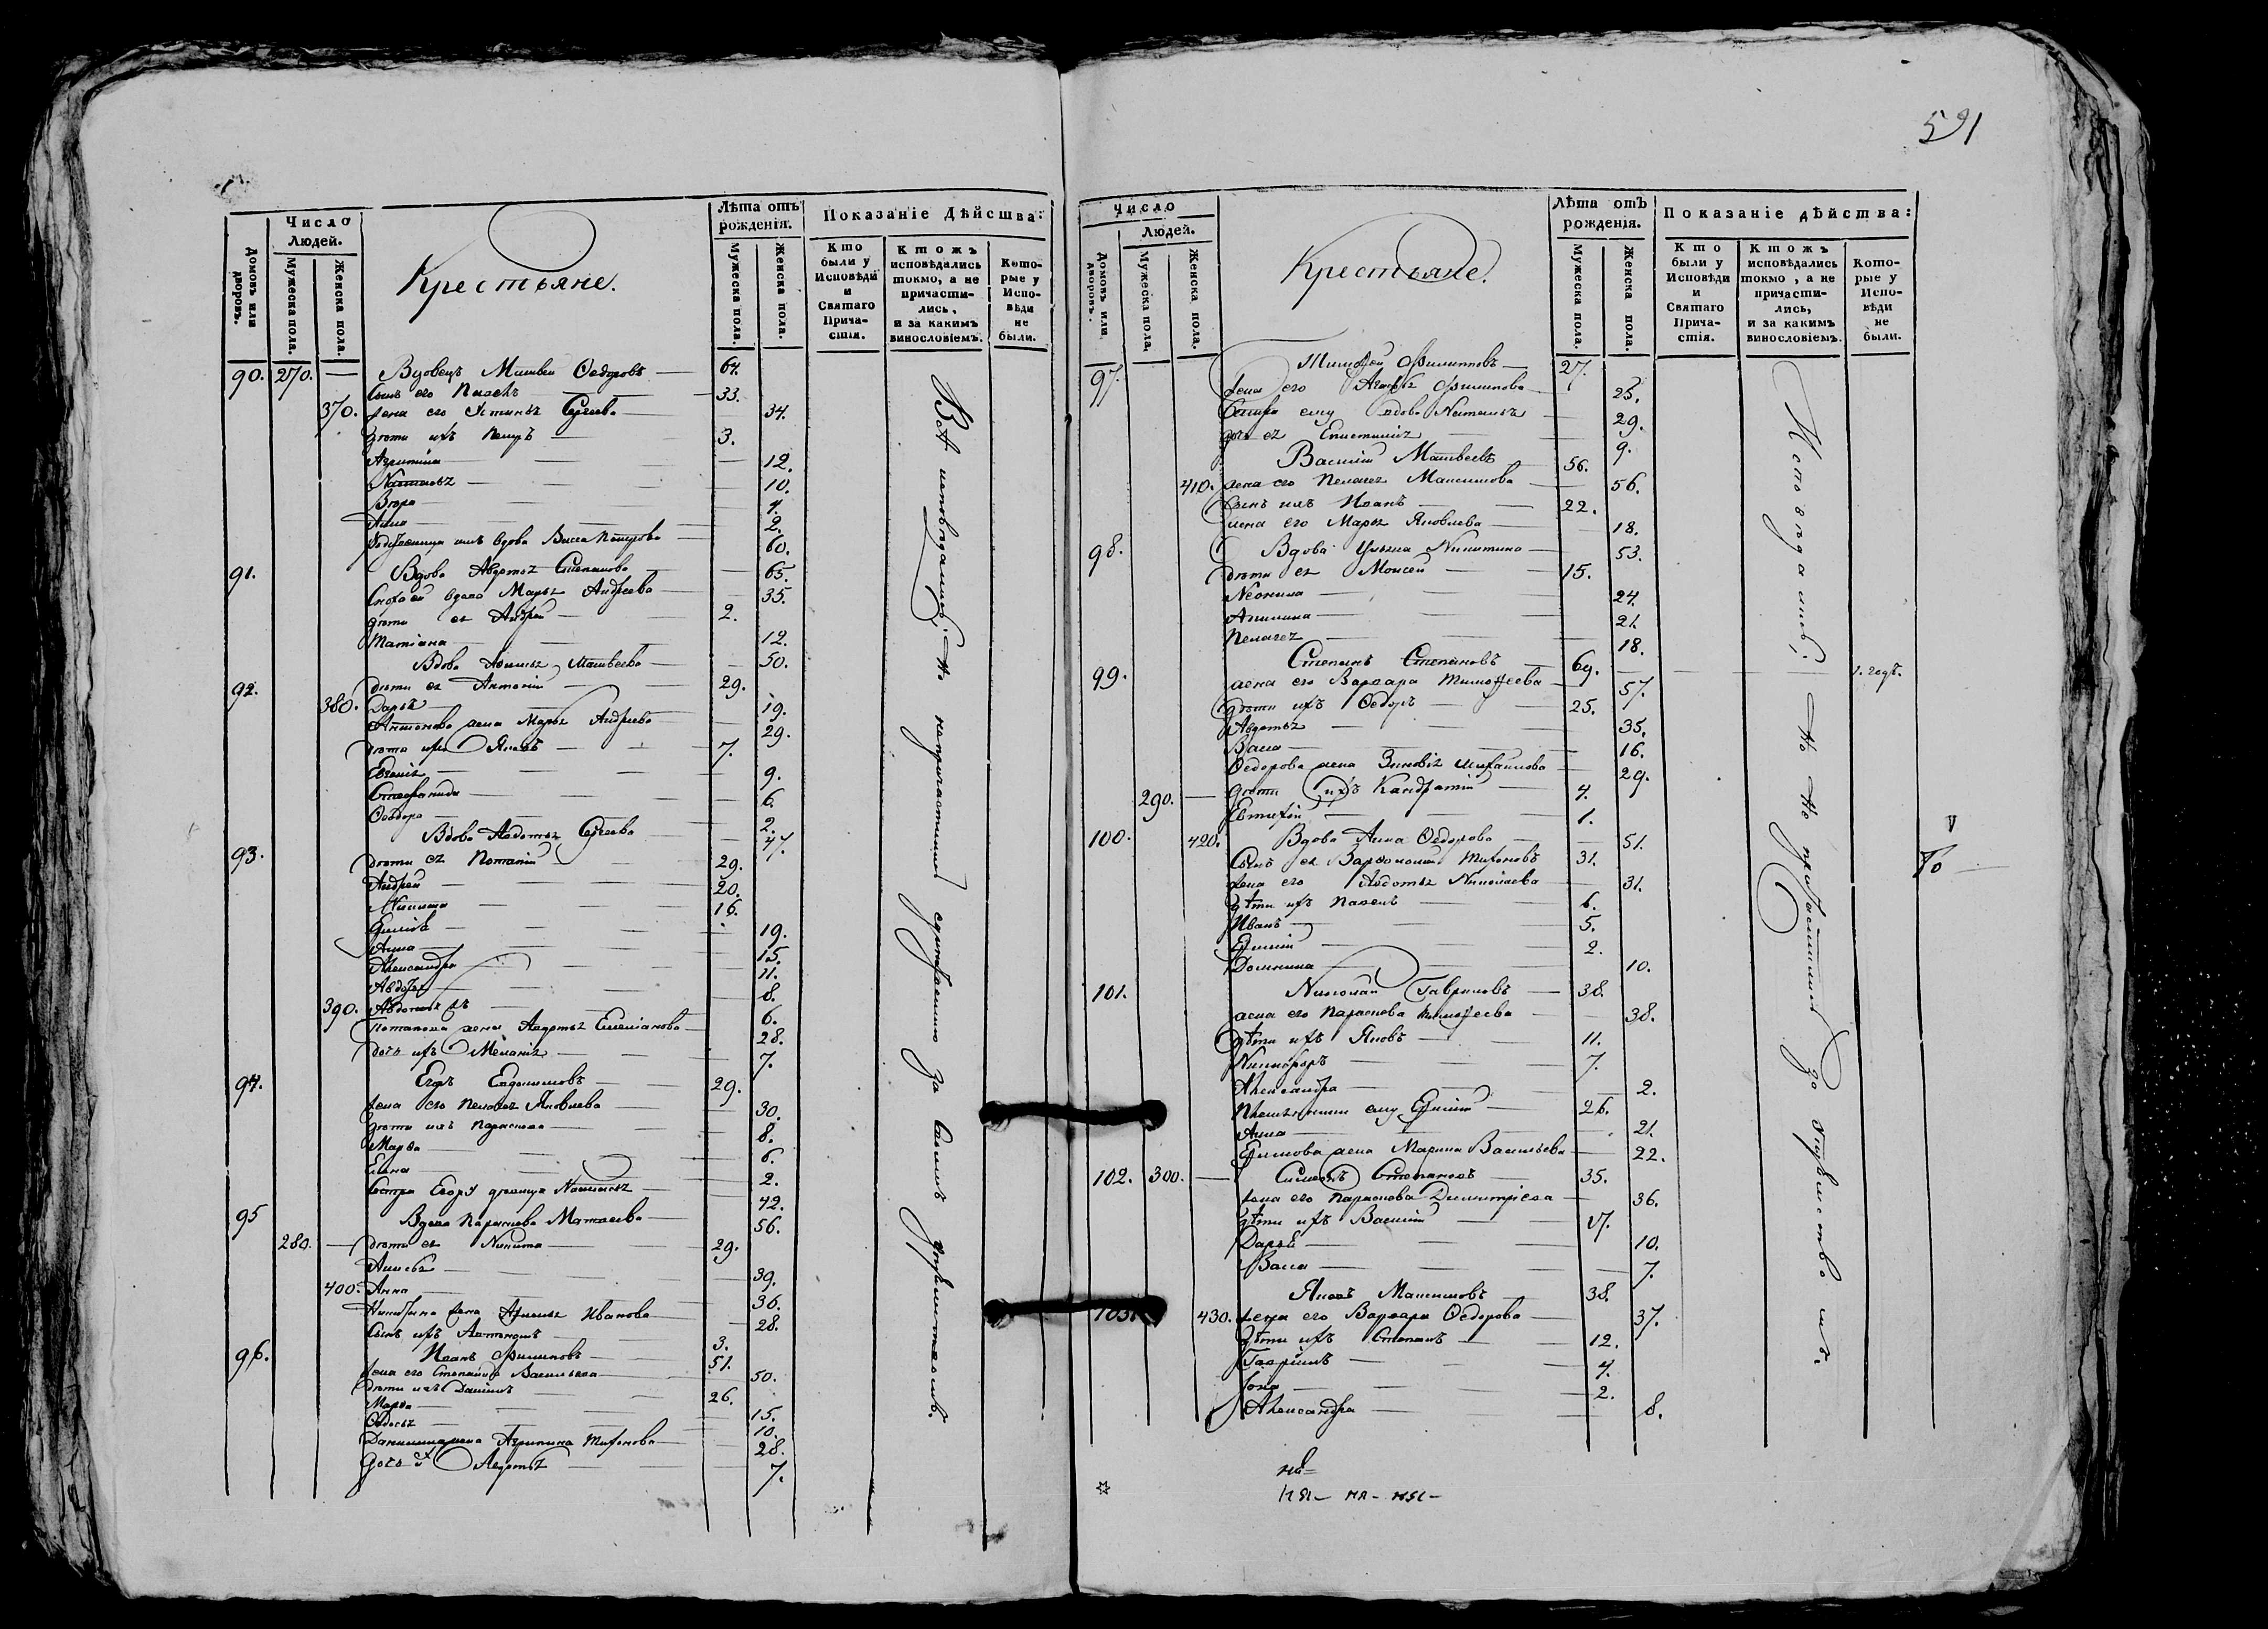 591
Число Людей.
Домовъ или дворовъ.
Мужеска пола.
Женска пола.
Крестьяне.
Лѣта отъ рожденія.
Мужеска пола.
Женска пола.
Показаніе Дѣйства:
Кто были у Исповѣди и Святаго Прича-стія.
Ктожъ исповѣдались токмо, а не причасти-лись, и за какимъ винословіемъ.
Кото-рые у Испо-вѣди не были.
90. 270. — Вдовецъ Матвей Ѳедоровъ — 64.
Сынъ его 33.
370. жена его Устинья Сергеева — 34.
дѣти ихъ Петръ — 3.
Агрипина — 12.
Наталья — 10.
4.
Анна — 2.
вдова Васса Петрова — 60.
91. Вдова Авдотья Степанова — 65.
вдова Марья Андреева — 35.
дѣти ея Андрей — 2.
Татіана — 12.
92. Вдова Матвеева — 50.
дѣти ея Антоній — 29.
380. Дарья — 19.
Антонова жена Марья Андреева — 29.
дѣти ихъ Яковъ — 7.
Евгенія — 9.
Стефанида — 6.
Ѳеодора — 2.
93. Вдова Авдотья Сергеева — 47.
дѣти ея Потапій — 29.
Андрей — 20.
Никита — 16.
19.
Анна — 15.
Александра — 11.
Авдотья — 8.
390. 6.
Потапова жена Авдотья Емеліанова — 28.
дочь ихъ Меланія — 7.
94. Егоръ Евдокимовъ — 29.
жена его Пелагея Яковлева — 30.
дѣти ихъ Параскева — 8.
Марѳа — 6.
Елена — 2.
Сестра Егору девица Наталья — 42.
95 Вдова Параскева Матвеева — 56.
280. — дѣти ея Никита — 29.
Анисья — 39.
400. Анна — 36.
Никитина жена Иванова — 28.
Сынъ ихъ 3.
96. Иванъ Филиповъ — 51.
жена его Степанида Васильева — 50.
дѣти ихъ Даніилъ — 26.
Марѳа — 15.
Ѳедосья — 10.
Даниила жена Агрипина Тихонова — 28.
дочь Авдотья — 7.
Всѣ исповѣдались; но непричастились за
Число Людей.
Домовъ или дворовъ.
Мужеска пола.
Женска пола.
Крестьяне.
Лѣта отъ рожденія.
Мужеска пола.
Женска пола.
Показаніе дѣйства:
Кто были у Исповѣди и Святаго Прича-стія.
Ктожъ исповѣдались токмо, а не причасти-лись, и за какимъ винословіемъ.
Кото-рые у Испо-вѣди не были.
97. Тимоѳей Филипповъ — 27.
жена его Агафья Филипова — 25.
ему вдова Наталья — 29.
дочь ея Епистимія — 9.
Василій Матвеевъ — 56.
410. жена его Пелагея Максимова — 56.
сынъ ихъ Иванъ — 22.
жена его Марья Яковлева — 18.
98. Вдова Ульяна Никитина — 53.
дѣти ея Моисей — 15.
Неонила — 24.
Акилина — 21.
Пелагея — 18.
99. Степанъ Степановъ — 69. — 1. годъ.
жена его Варвара Тимоѳеева — 57.
дѣти ихъ Ѳедоръ — 25.
Авдотья — 35.
Васса — 16.
Ѳедорова жена Зиновія Михаилова — 29.
290. — дѣти ихъ Кандратій — 4.
Евтихій — 1.
100. 420. Вдова Анна Ѳедорова — 51.
Сынъ ея Варѳоломей Тихоновъ 31.
жена его Авдотья Николаева — 31.
дѣти ихъ Павелъ — 6.
Иванъ — 5.
Ефимій — 2.
Домнина — 10.
101. Николай Гавриловъ — 38.
жена его Параскева Тимоѳеева — 38.
дѣти ихъ Яковъ — 11.
Никифоръ — 7.
Александра — 2.
ему Ефимій — 26.
Анна — 21.
Ефимова жена Марина Васильева — 22.
102. 300. — Симеонъ Степановъ — 35.
жена его Параскева Димитріева — 36.
дѣти ихъ Василій — 17.
Дарья — 10.
Васса — 7.
103. Яковъ Максимовъ — 38.
430. жена его Варвара Ѳедорова — 37.
дѣти ихъ Степанъ — 12.
Гавріилъ — 4.
Іона — 2.
Александра — 8.
Исповѣдались; но не причастились за